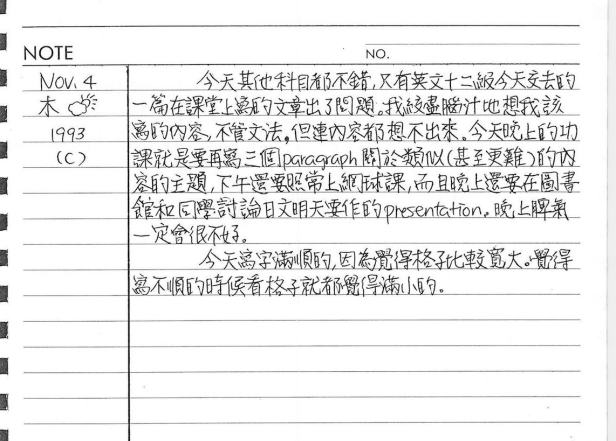 NOTE NO.
Nov. 4 今天其他科目都不錯，只有英文十二級今天交去的
木 一篇在課堂上寫的文章出了問題。我絞盡腦汁地想我該
1993 寫的內容，不管文法，但連內容都想不出來。今天晚上的功
(C) 課就是要再寫三個paragraph關於類似(甚至更難)的內
容的主題，下午還要照常上網球課，而且晚上還要在圖書
館和同學討論日文明天要作的presentation。晚上脾氣
一定會很不好。
今天寫字滿順的，因為覺得格子比較寬大。覺得
寫不順的時候看格子就都覺得滿小的。